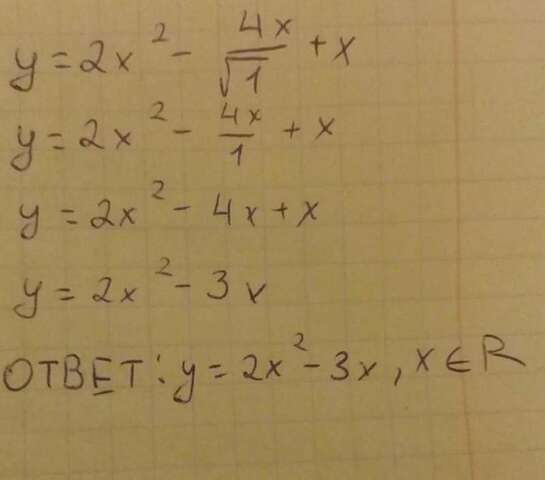 y = 2x² - 4x/√1 + x
y = 2x² - 4x/1 + x
y = 2x² - 4x + x
y = 2x² - 3x
ОТВЕТ: y = 2x² - 3x, x ∈ R